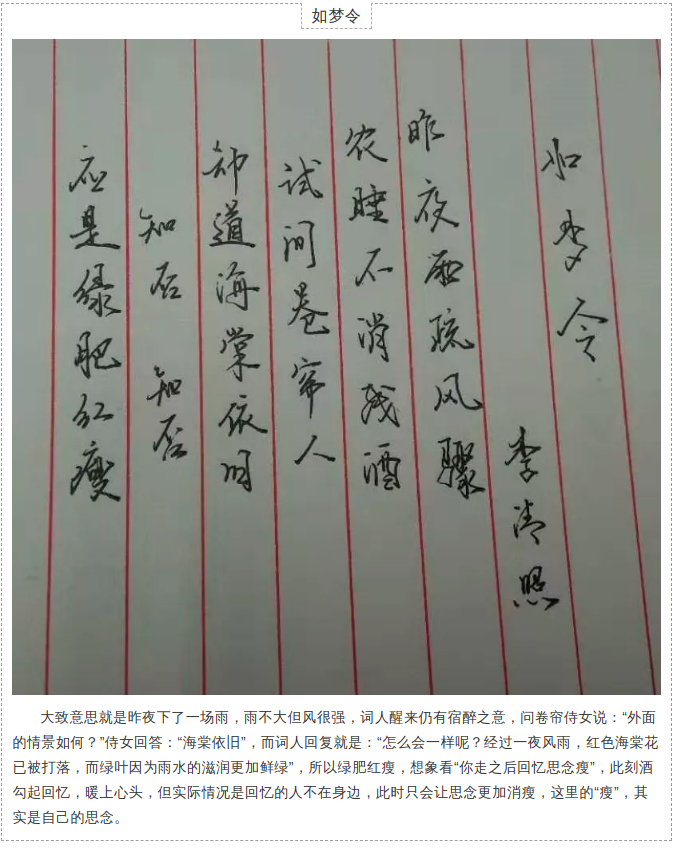 如梦令
如梦令
李清照
昨夜雨疏风骤
农睡不消残酒
试问卷帘人
却道海棠依旧
知否 知否
应是绿肥红瘦
大致意思就是昨夜下了一场雨，雨不大但风很强，词人醒来仍有宿醉之意，问卷帘侍女说：“外面
的情景如何？”侍女回答：“海棠依旧”，而词人回复就是：“怎么会一样呢？经过一夜风雨，红色海棠花
已被打落，而绿叶因为雨水的滋润更加鲜绿”，所以绿肥红瘦，想象看“你走之后回忆思念瘦”，此刻酒
勾起回忆，暖上心头，但实际情况是回忆的人不在身边，此时只会让思念更加消瘦，这里的“瘦”，其
实是自己的思念。